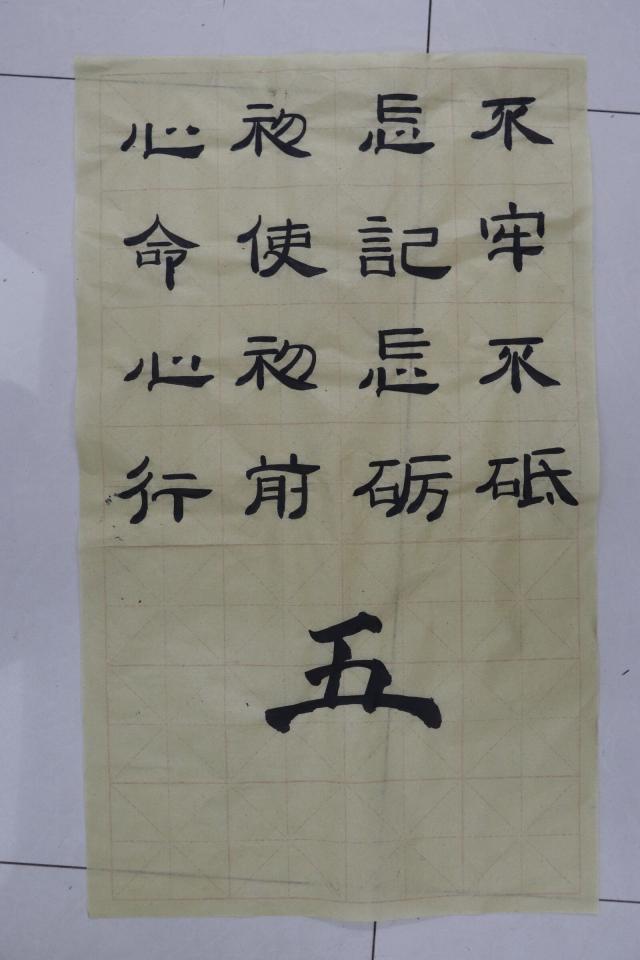 不忘初心
牢記使命
不忘初心
砥砺前行
五